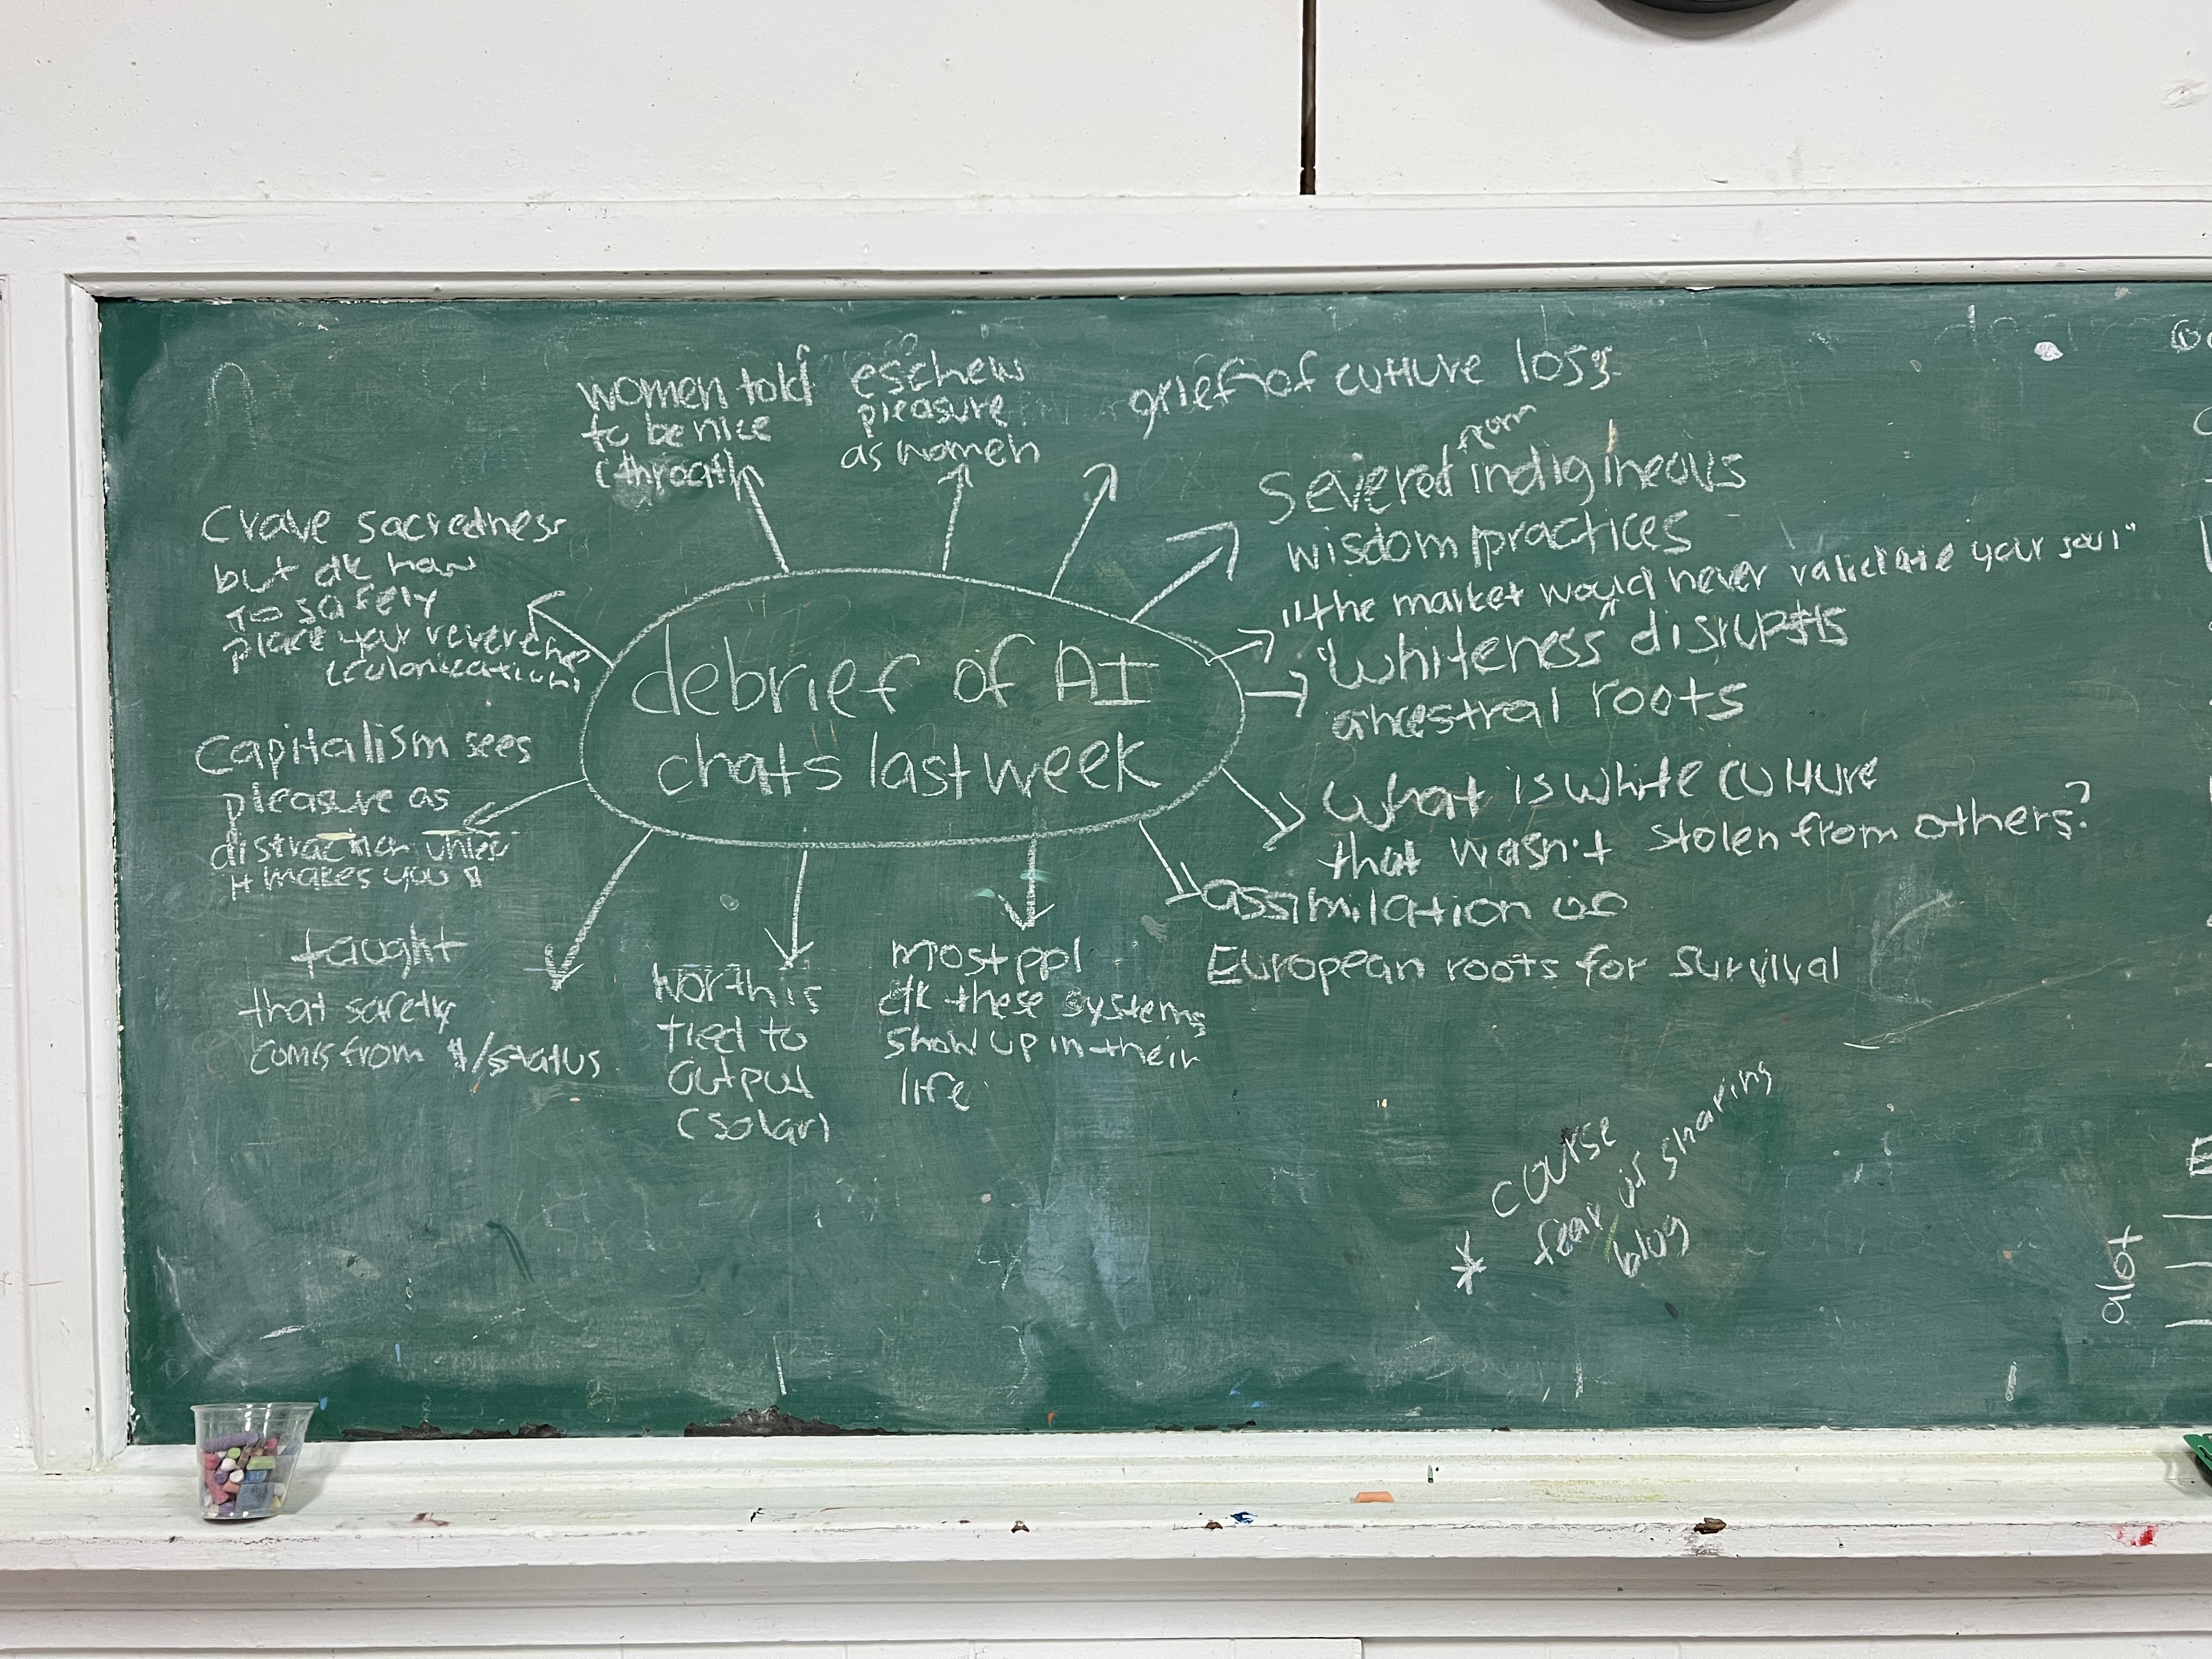 women told
to be nice
(throat)
eschew
pleasure
as women
grief of culture loss
from
severed indigineous
wisdom practices
"the market would never validate your soul"
"whiteness" disrupts
ancestral roots
what is white culture
that wasn't stolen from others?
assimilation of
European roots for survival
most ppl
dk these systems
show up in their
life
worth is
tied to
output
(solar)
taught
that safety
comes from $/status
Capitalism sees
pleasure as
distraction unless
it makes you $
Crave sacredness
but dk how
to safely
place your reverence
(colonization)
debrief of AI
chats last week
* course
fear is sharing
blog
alot